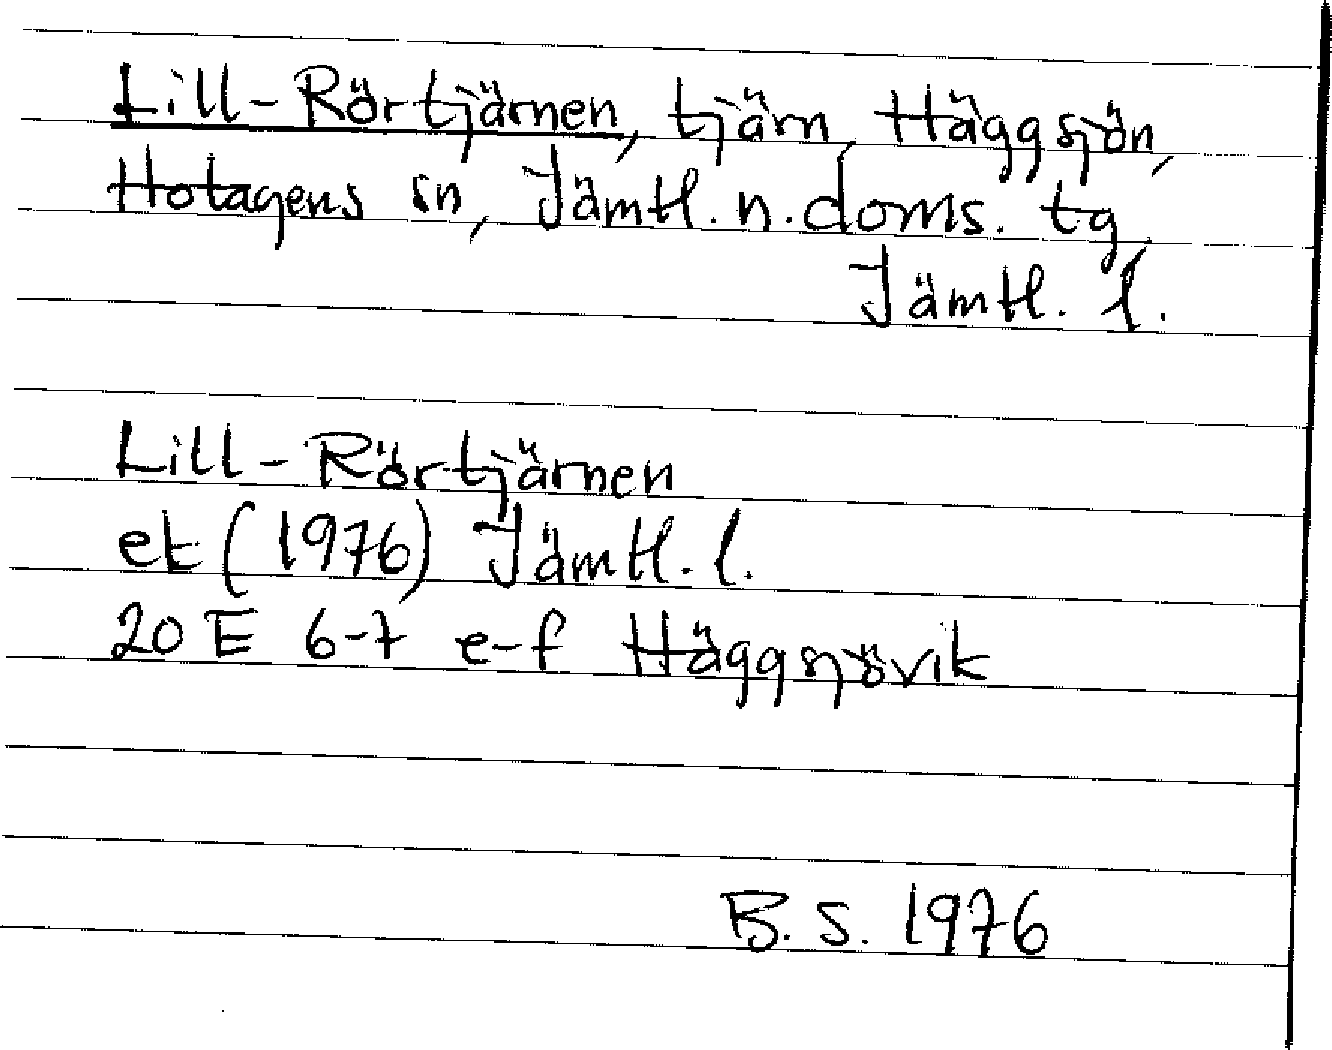 Lill-Rörtjärnen, tjärn, Häggsjön,
Hotagens sn, Jämtl. n. doms. tg,
Jämtl. l.
Lill-Rörtjärnen
ek (1976) Jämtl. l.
20 E 6-7 e-f Häggsjövik
B. S. 1976